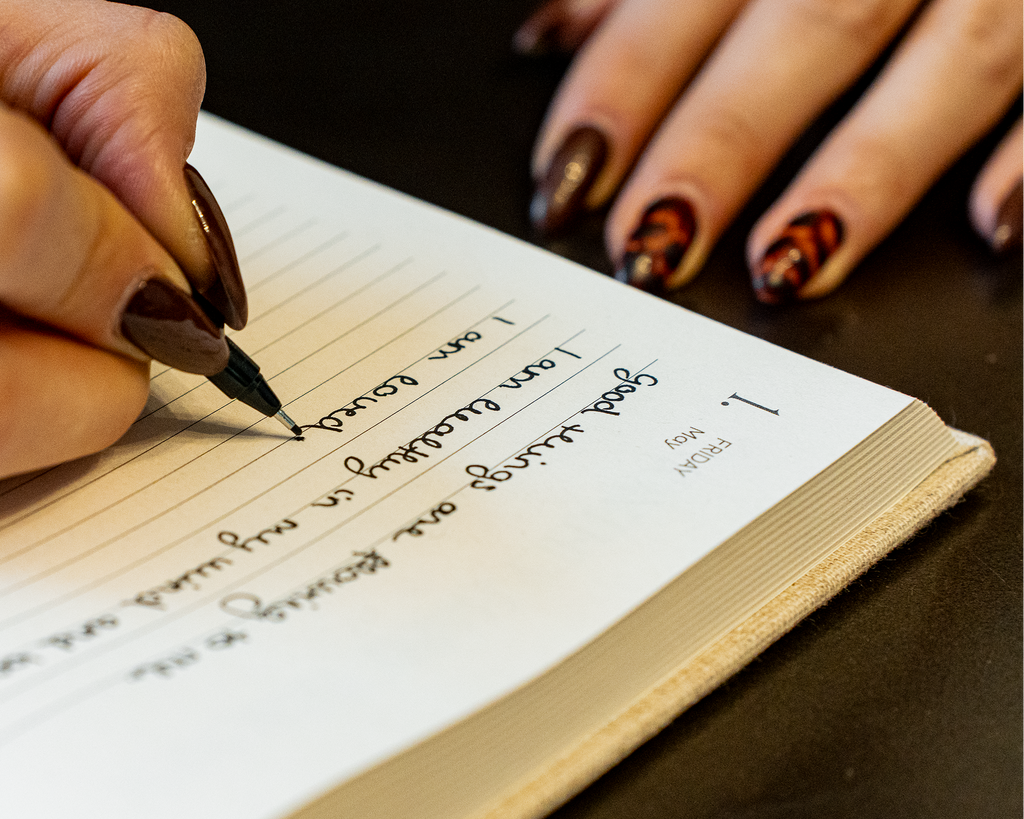 1.
FRIDAY
May
Good things are flowing to me
I am healthy in my mind and
I am loved